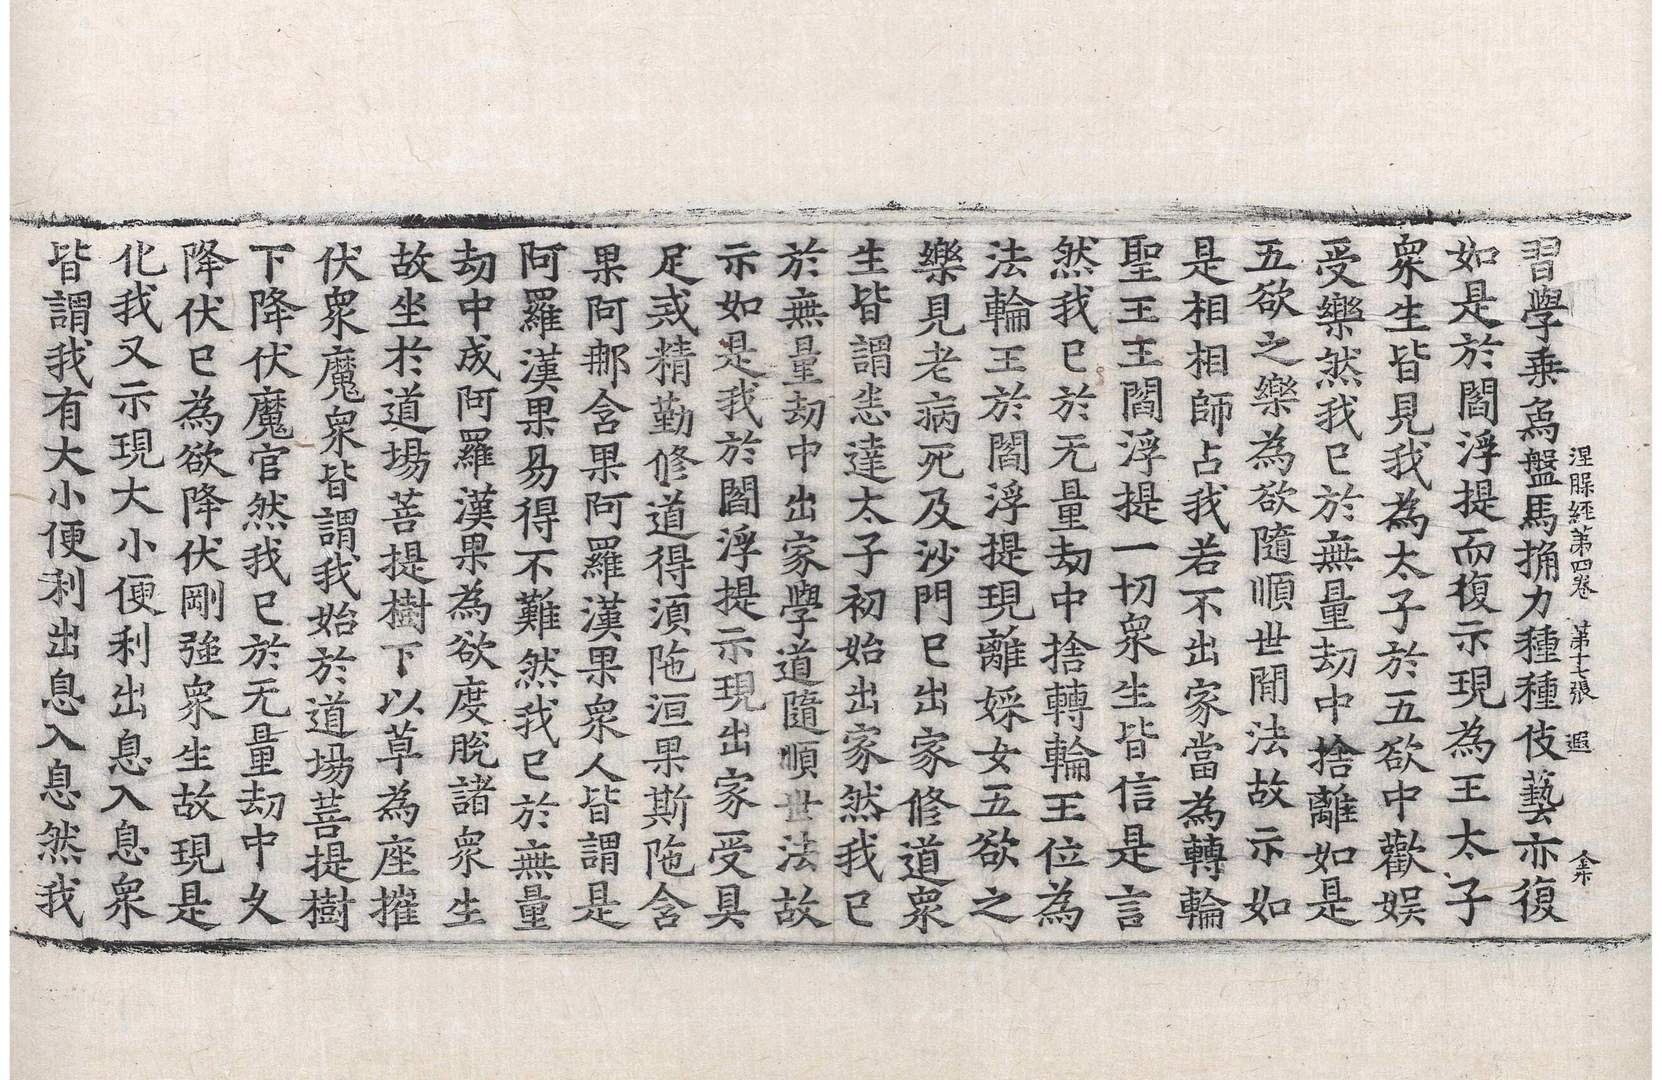 涅槃經第四卷　第十七張　遐　金
習學乗象盤馬捔力種種伎藝亦復
如是於閻浮提而復示現為王太子
衆生皆見我為太子於五欲中歡娱
受樂然我已於無量劫中捨離如是
五欲之樂為欲隨順世間法故示如
是相相師占我若不出家當為轉輪
聖王王閻浮提一切衆生皆信是言
然我已於无量劫中捨轉輪王位為
法輪王於閻浮提現離婇女五欲之
樂見老病死及沙門已出家修道衆
生皆謂悉達太子初始出家然我已
於無量劫中出家學道隨順世法故
示如是我於閻浮提示現出家受具
足戒精勤修道得湏陁洹果斯陁含
果阿那含果阿羅漢果衆人皆謂是
阿羅漢果易得不難然我已於無量
劫中成阿羅漢果為欲度脫諸衆生
故坐於道場菩提樹下以草為座摧
伏衆魔衆皆謂我始於道場菩提樹
下降伏魔官然我已於无量劫中久
降伏已為欲降伏剛強衆生故現是
化我又示現大小便利出息入息衆
皆謂我有大小便利出息入息然我